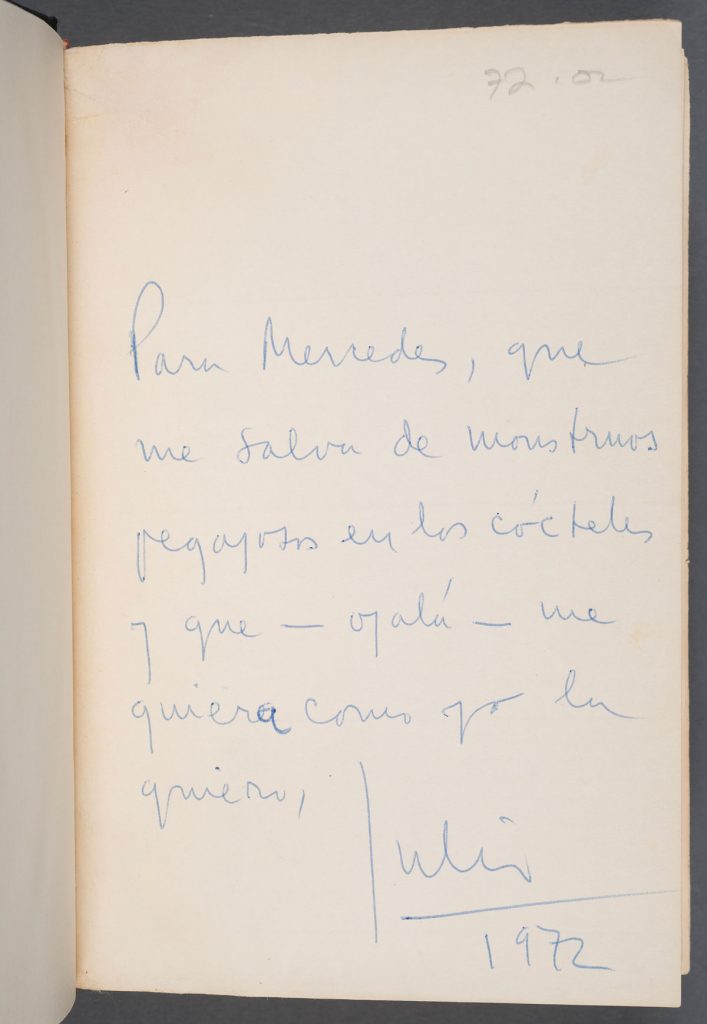 72.02
Para Mercedes, que
me salva de monstruos
pegajosos en los cócteles
y que — ojalá — me
quiera como yo la
quiero,
Julio
1972